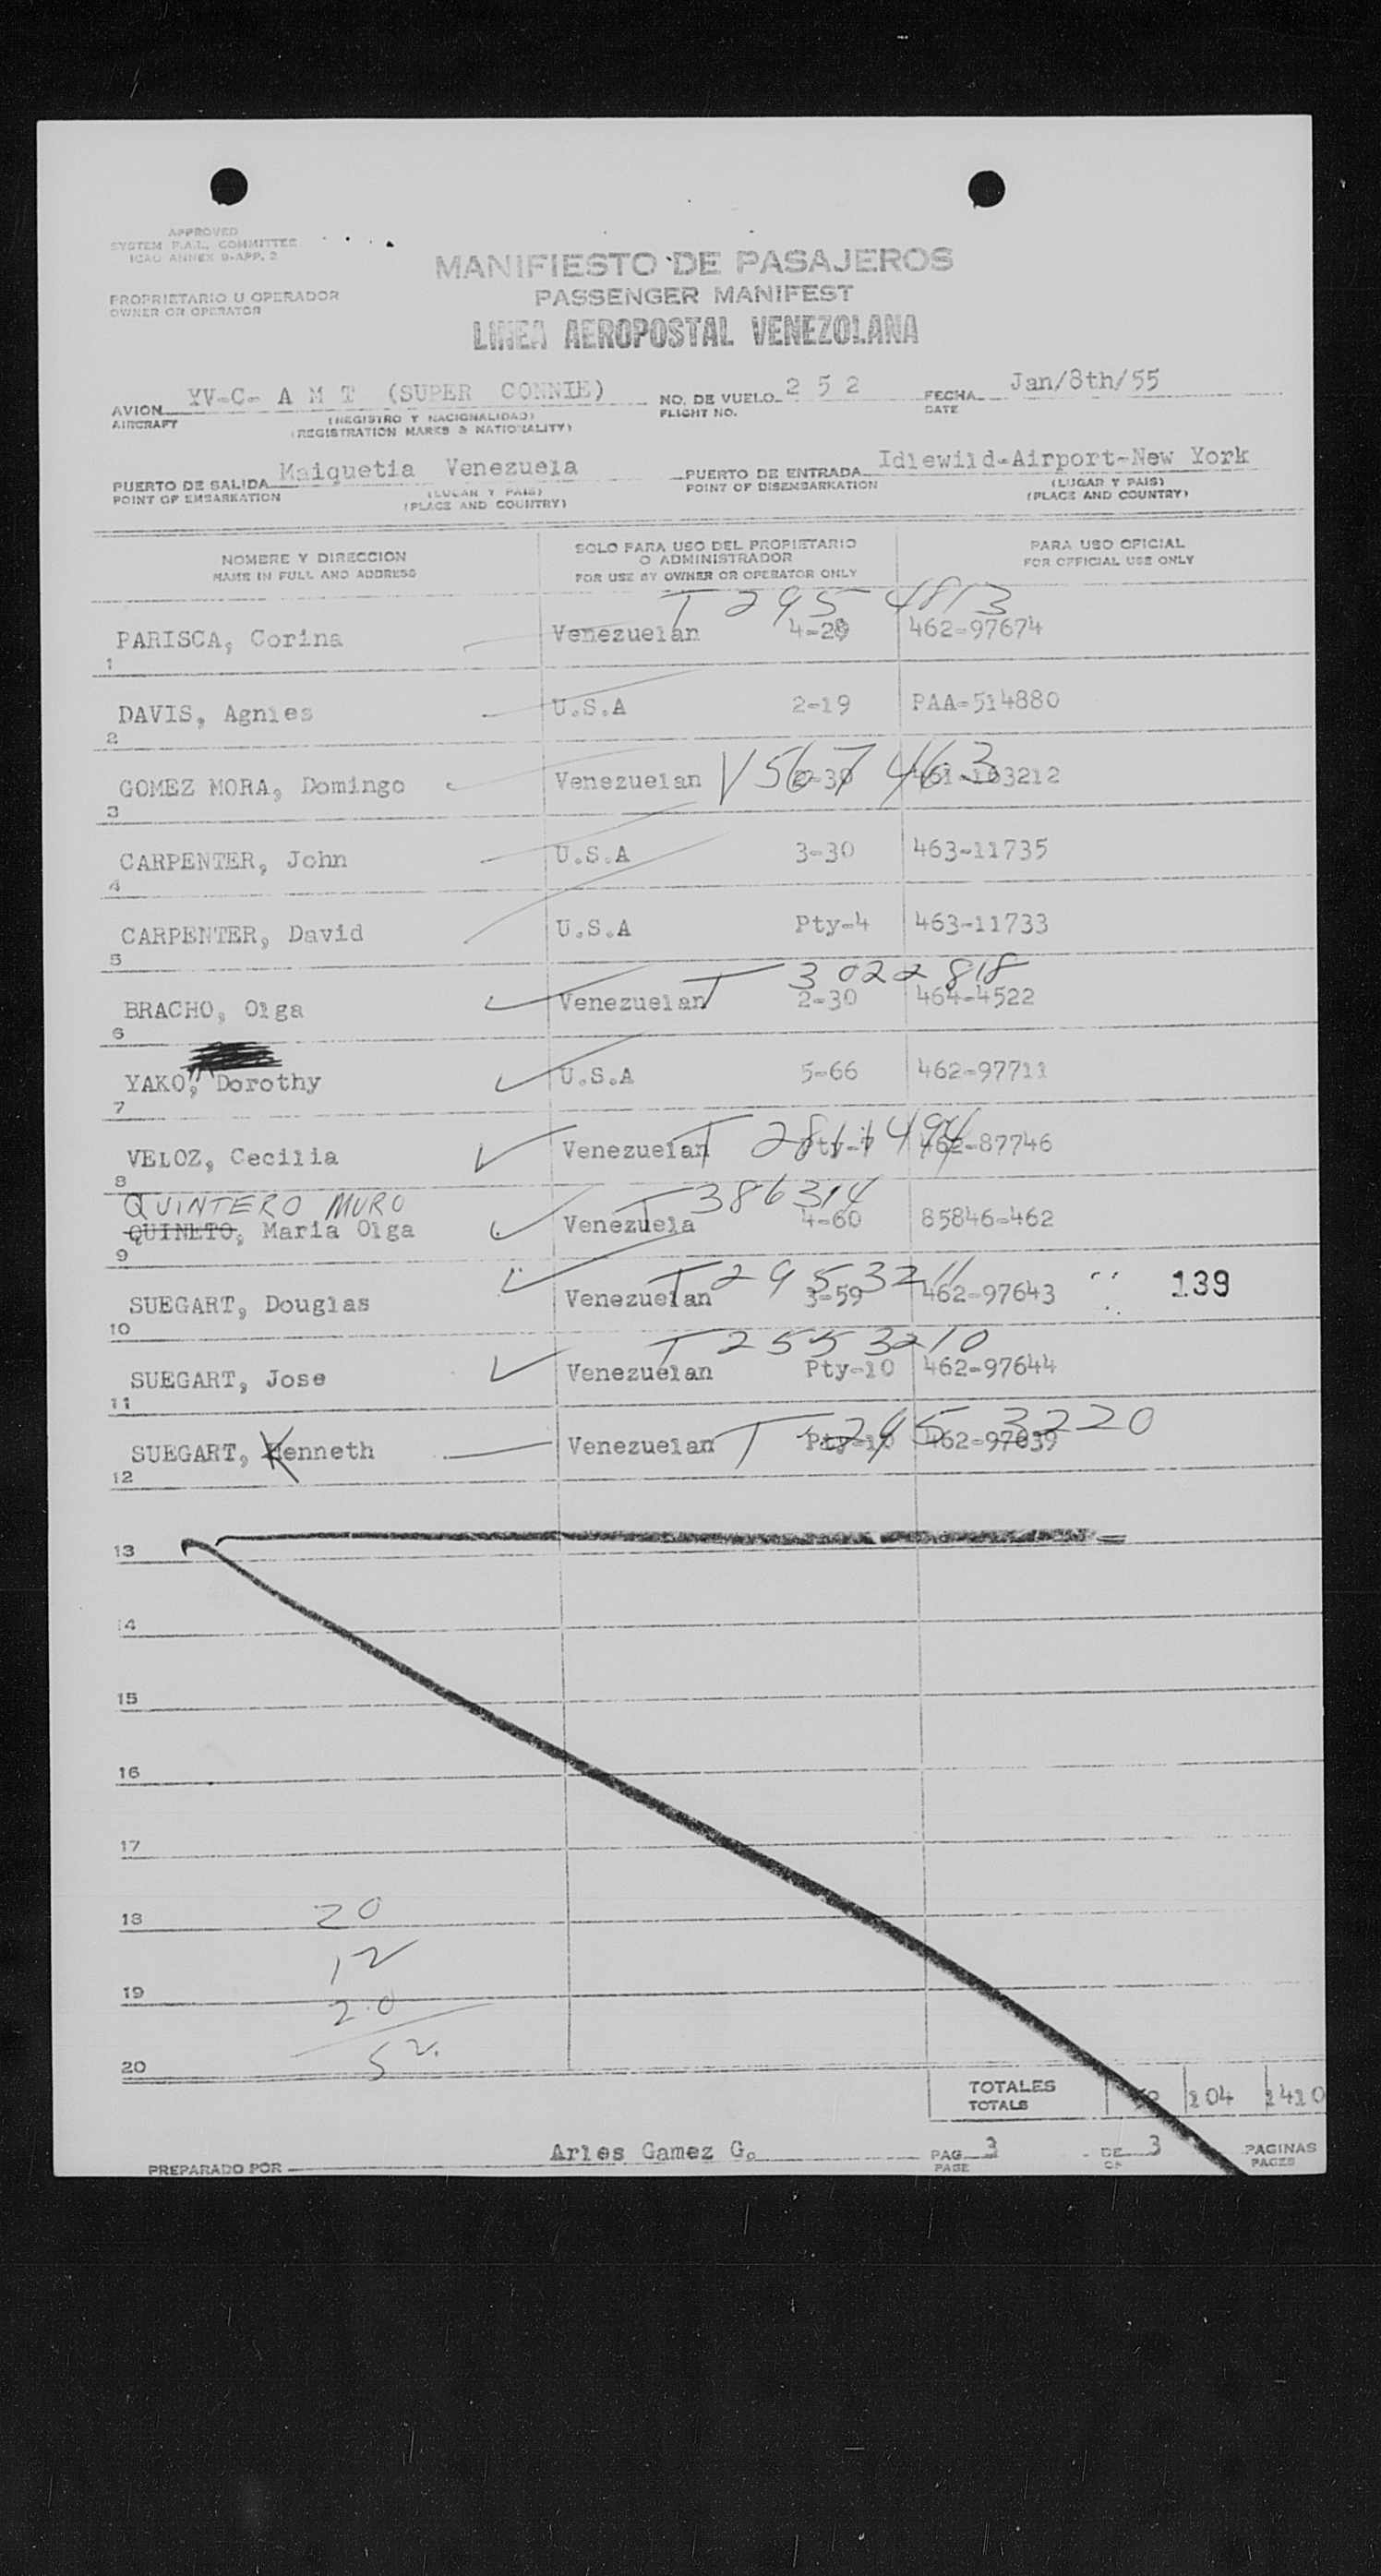 APPROVED
SYSTEM F.A.L. COMMITTEE
ICAO ANNEX 9-APP. 2
MANIFIESTO DE PASAJEROS
PROPRIETARIO U OPERADOR
OWNER OR OPERATOR
PASSENGER MANIFEST
LINEA AEROPOSTAL VENEZOLANA
AVION YV-C- A M T (SUPER CONNIE) NO. DE VUELO 2 5 2 FECHA Jan/8th/55
AIRCRAFT (REGISTRO Y NACIONALIDAD) FLIGHT NO. DATE
(REGISTRATION MARKS & NATIONALITY)
PUERTO DE SALIDA Maiquetia Venezuela PUERTO DE ENTRADA Idlewild-Airport-New York
POINT OF EMBARKATION (LUGAR Y PAIS) POINT OF DISEMBARKATION (LUGAR Y PAIS)
(PLACE AND COUNTRY) (PLACE AND COUNTRY)
NOMBRE Y DIRECCION SOLO PARA USO DEL PROPIETARIO PARA USO OFICIAL
O ADMINISTRADOR
NAME IN FULL AND ADDRESS FOR USE BY OWNER OR OPERATOR ONLY FOR OFFICIAL USE ONLY
T 295 4813
PARISCA, Corina Venezuelan 4-29 462-97674
1
DAVIS, Agnies U.S.A 2-19 PAA-514880
2
V567 463
GOMEZ MORA, Domingo Venezuelan 2-30 461-103212
3
CARPENTER, John U.S.A 3-30 463-11735
4
CARPENTER, David U.S.A Pty-4 463-11733
5
T 3022818
BRACHO, Olga Venezuelan 2-30 464-4522
6
YAKO, Dorothy U.S.A 5-66 462-97711
7
T 2811494
VELOZ, Cecilia Venezuelan Pty-7 462-87746
8
QUINTERO MURO T 386314
QUINETO, Maria Olga Venezuela 4-60 85846-462
9
T 2953211
SUEGART, Douglas Venezuelan 3-59 462-97643 139
10
T 2553210
SUEGART, Jose Venezuelan Pty-10 462-97644
11
T 295 3220
SUEGART, Kenneth Venezuelan Pty-10 462-97639
12
13
14
15
16
17
18 20
12
19
20
52.
20
TOTALES 104 1410
TOTALS
PREPARADO POR Arles Gamez G. PAG 3 DE 3 PAGINAS
PAGE OF PAGES